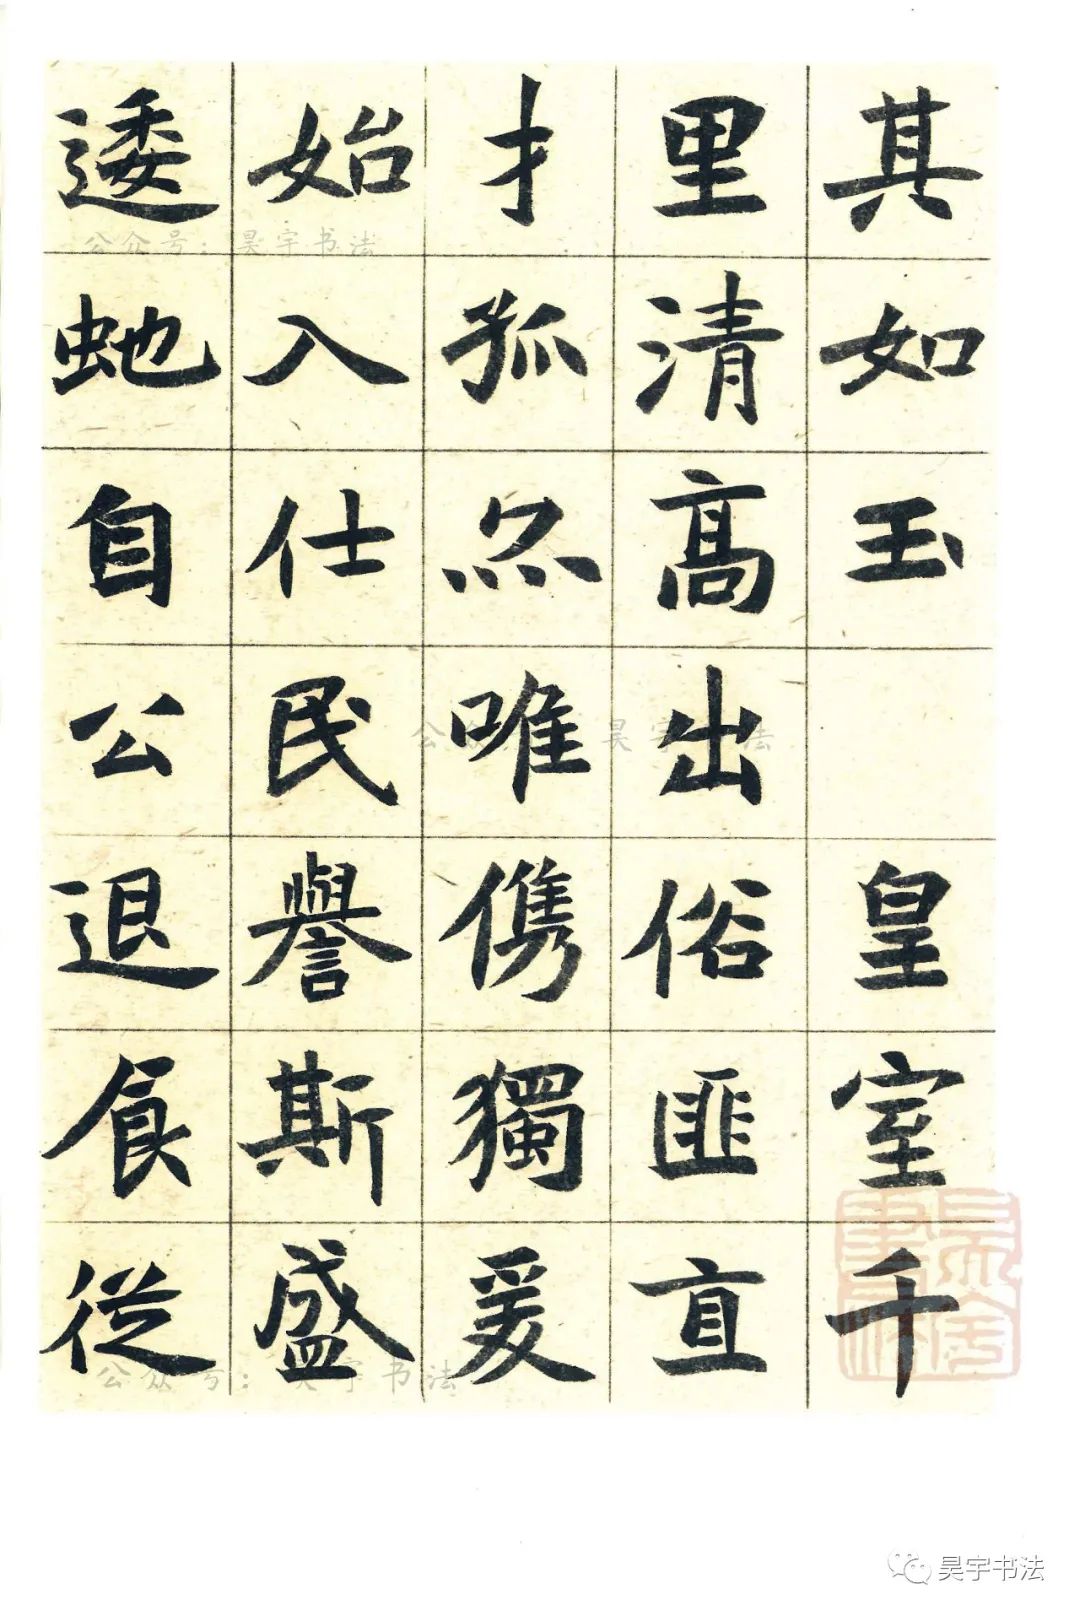 其如玉 皇室千
里清高出俗匪直
才孤唯儁獨爰
始入仕民譽斯盛
逶虵自公退食從
公众号：昊宇书法
公众号：昊宇书法
公众号：昊宇书法
昊宇书法